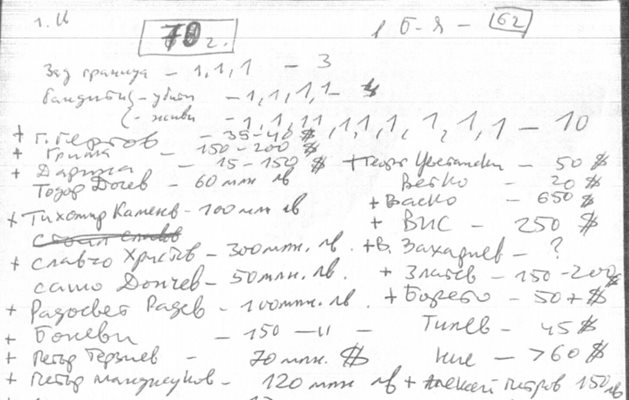 г. И
70 г.
1 Б-Я - 62
Зад граница - 1,1,1 - 3
бандити - убити - 1,1,1,1 - 4
- живи - 1,1,1,1,1,1,1,1,1,1 - 10
+ Г. Гергов - 35-40 $
+ Гриша - 150-200 $
+ Дарина - 15-150 $
Тодор Дочев - 60 млн лв
+ Тихомир Каменов - 100 млн лв
+ Славчо Христов - 300 млн. лв.
Сашо Дончев - 50 млн. лв.
+ Радосвет Радев - 100 млн. лв.
+ Боневи - 150 -11-
+ Петър Терзиев - 70 млн. $
+ Петър Манджуков - 120 млн лв
+ Георги Цветански - 50 $
Ветко - 20 $
+ Васко - 650 $
+ ВИС - 250 $
+ В. Захариев - ?
+ Златев - 150-200 $
+ Борето - 50 + $
Тилев - 45 $
Ние - 760 $
+ Алексей Петров 150 лв